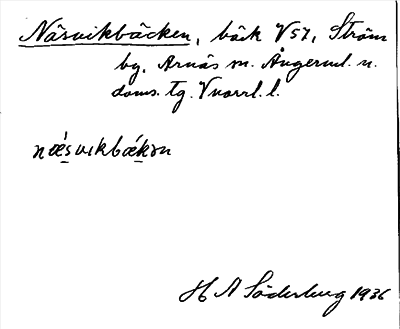 Näsvikbäcken, bäck V57, Ström
by, Arnäs sn. Ångerml. n.
doms. tg. Vnorrl. l.
næ̀svikbækən
H A Söderberg 1936